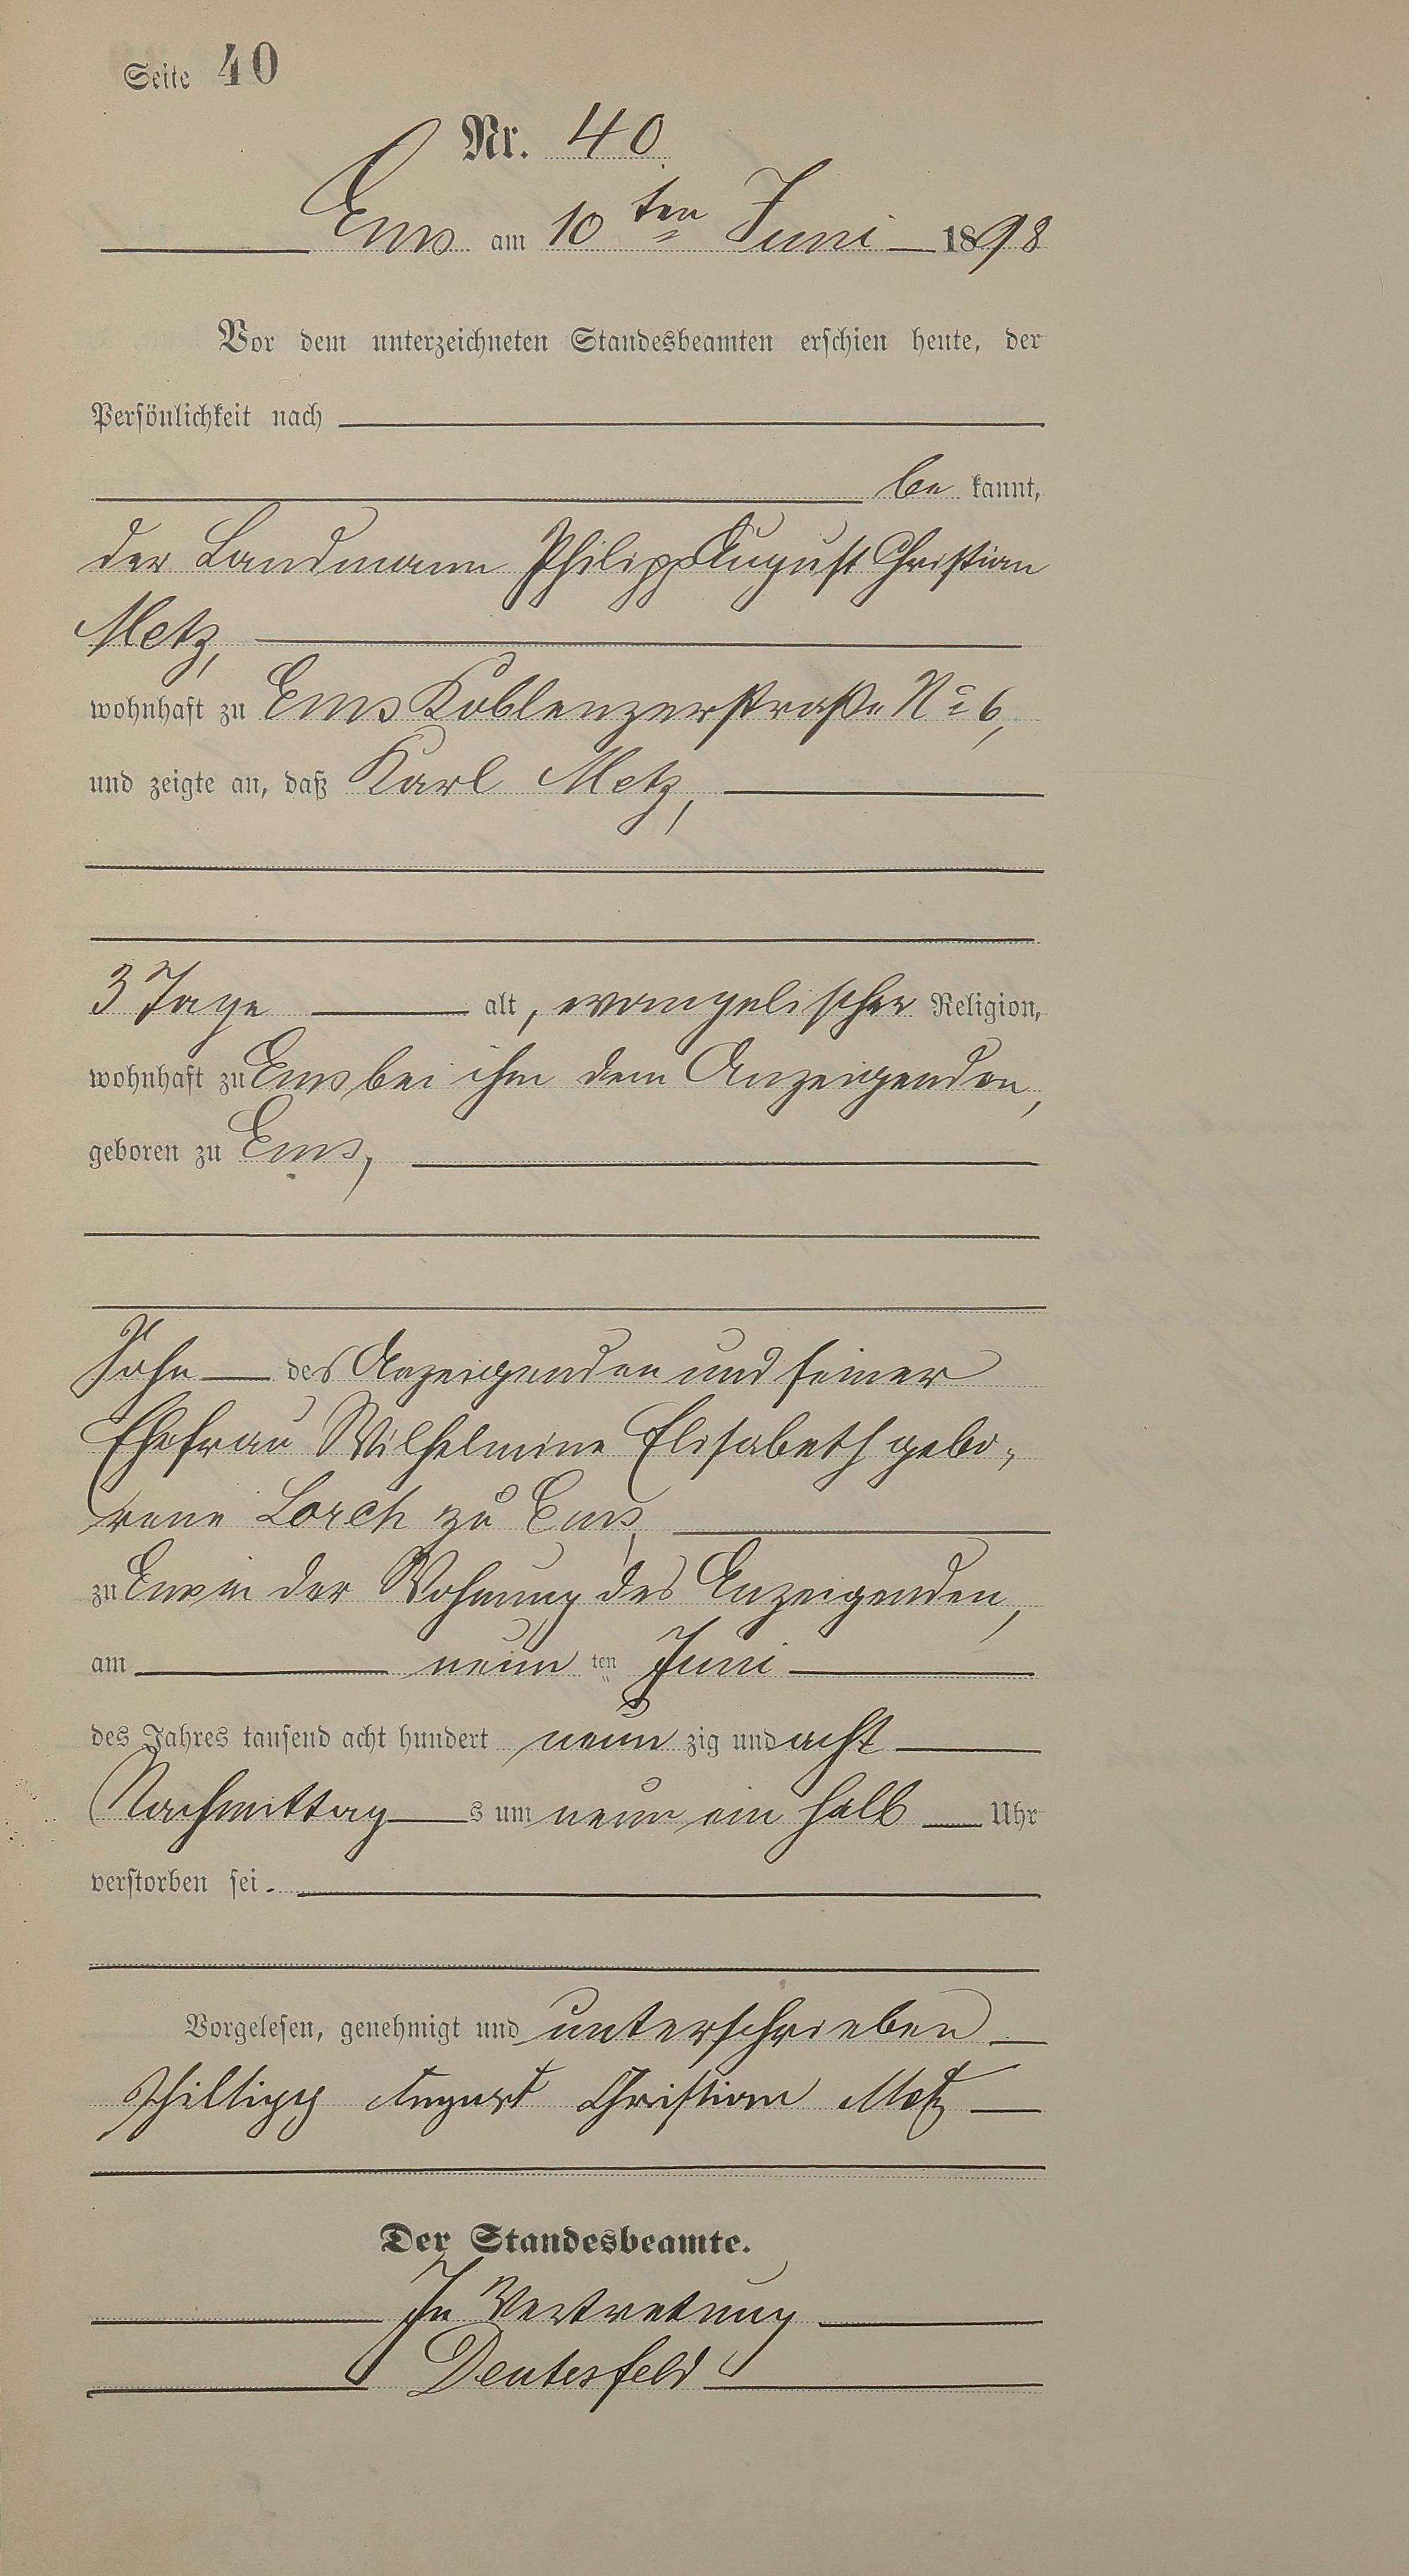 Seite 40
Nr. 40
Ems am 10ten Juni 1898
Vor dem unterzeichneten Standesbeamten erschien heute, der
Persönlichkeit nach
be kannt,
der Landmann Philipp August Christian
Metz,
wohnhaft zu Ems Koblenzerstraße No 6,
und zeigte an, daß Karl Metz,
3 Tage alt, evangelischer Religion,
wohnhaft zu Ems bei ihm dem Anzeigenden,
geboren zu Ems,
Sohn des Anzeigenden und seiner
Ehefrau Wilhelmine Elisabeth gebo-
rene Lorch zu Ems,
zu Ems in der Wohnung des Anzeigenden,
am neun ten Juni
des Jahres tausend acht hundert neun zig und acht
Nachmittag s um neun ein halb Uhr
verstorben sei.
Vorgelesen, genehmigt und unterschrieben
Phillipp August Christian Metz
Der Standesbeamte.
In Vertretung
Deutesfeld